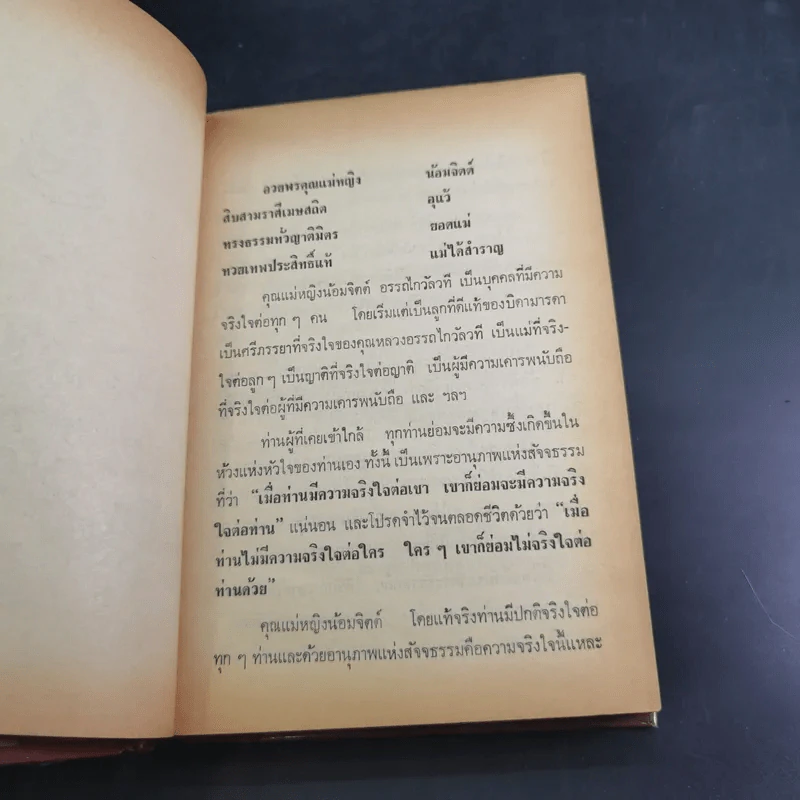 อวยพรคุณแม่หญิง น้อมจิตต์
สิบสามราศีเมษสถิต อุแว้
ทรงธรรมทวีญาติมิตร ยอดแม่
ทวยเทพประสิทธิ์แท้ แม่ได้สำราญ
คุณแม่หญิงน้อมจิตต์ อรรถไกวัลวที เป็นบุคคลที่มีความ
จริงใจต่อทุก ๆ คน โดยเริ่มแต่เป็นลูกที่ดีแท้ของบิดามารดา
เป็นศรีภรรยาที่จริงใจของคุณหลวงอรรถไกวัลวที เป็นแม่ที่จริง-
ใจต่อลูก ๆ เป็นญาติที่จริงใจต่อญาติ เป็นผู้มีความเคารพนับถือ
ที่จริงใจต่อผู้ที่มีความเคารพนับถือ และ ฯลฯ
ท่านผู้ที่เคยเข้าใกล้ ทุกท่านย่อมจะมีความซึ้งเกิดขึ้นใน
ห้วงแห่งหัวใจของท่านเอง ทั้งนี้ เป็นเพราะอานุภาพแห่งสัจจธรรม
ที่ว่า “เมื่อท่านมีความจริงใจต่อเขา เขาก็ย่อมจะมีความจริง
ใจต่อท่าน” แน่นอน และโปรดจำไว้จนตลอดชีวิตด้วยว่า “เมื่อ
ท่านไม่มีความจริงใจต่อใคร ใคร ๆ เขาก็ย่อมไม่จริงใจต่อ
ท่านด้วย”
คุณแม่หญิงน้อมจิตต์ โดยแท้จริงท่านมีปกติจริงใจต่อ
ทุก ๆ ท่านและด้วยอานุภาพแห่งสัจจธรรมคือความจริงใจนี้แหละ